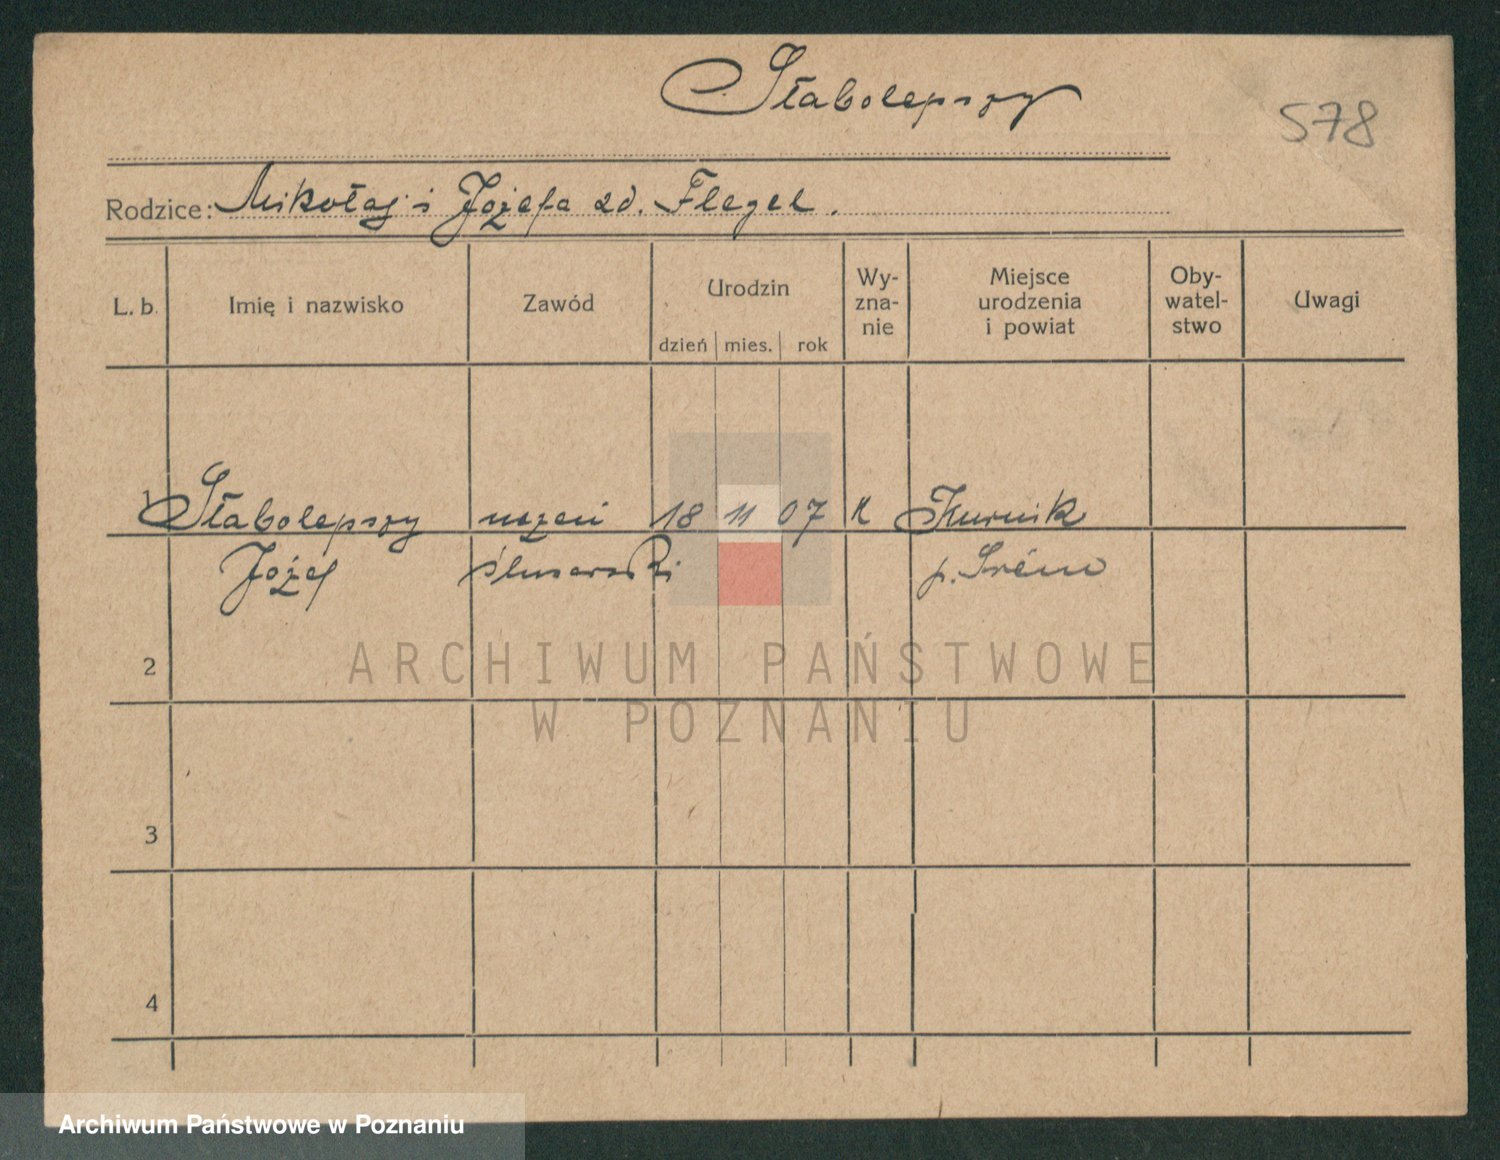 Słabolepszy
578
Rodzice: Mikołaj i Józefa zd. Flegel.
L. b. Imię i nazwisko Zawód Urodzin dzień mies. rok Wy-zna-nie Miejsce urodzenia i powiat Oby-watel-stwo Uwagi
1 Słabolepszy uczeń 18 11 07 k Kurnik
Józef ślusarski p. Śrem
2
ARCHIWUM PAŃSTWOWE
W POZNANIU
3
4
Archiwum Państwowe w Poznaniu